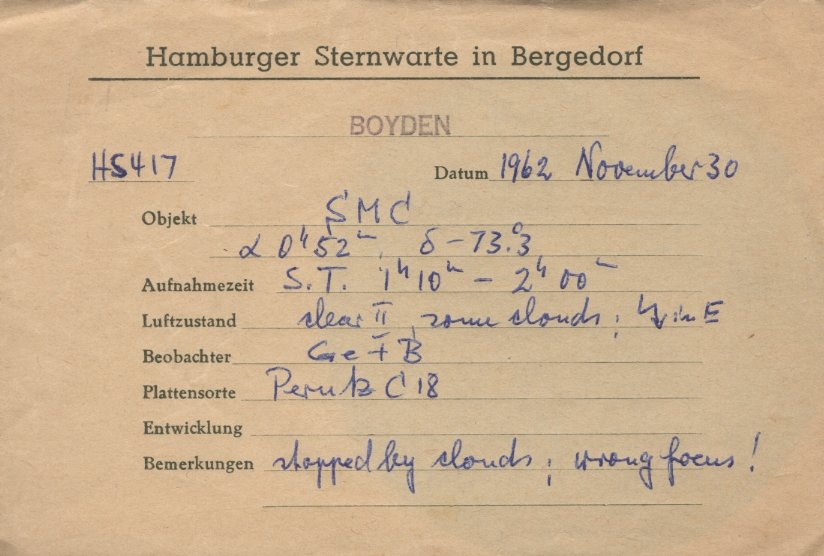 Hamburger Sternwarte in Bergedorf
BOYDEN
HS417 Datum 1962 November 30
Objekt SMC
α 0ʰ52ᵐ, δ -73.°3
Aufnahmezeit S.T. 1ʰ10ᵐ - 2ʰ00ᵐ
Luftzustand clear II, some clouds; in E
Beobachter Ge + B
Plattensorte Perutz C18
Entwicklung
Bemerkungen stopped by clouds; wrong focus!